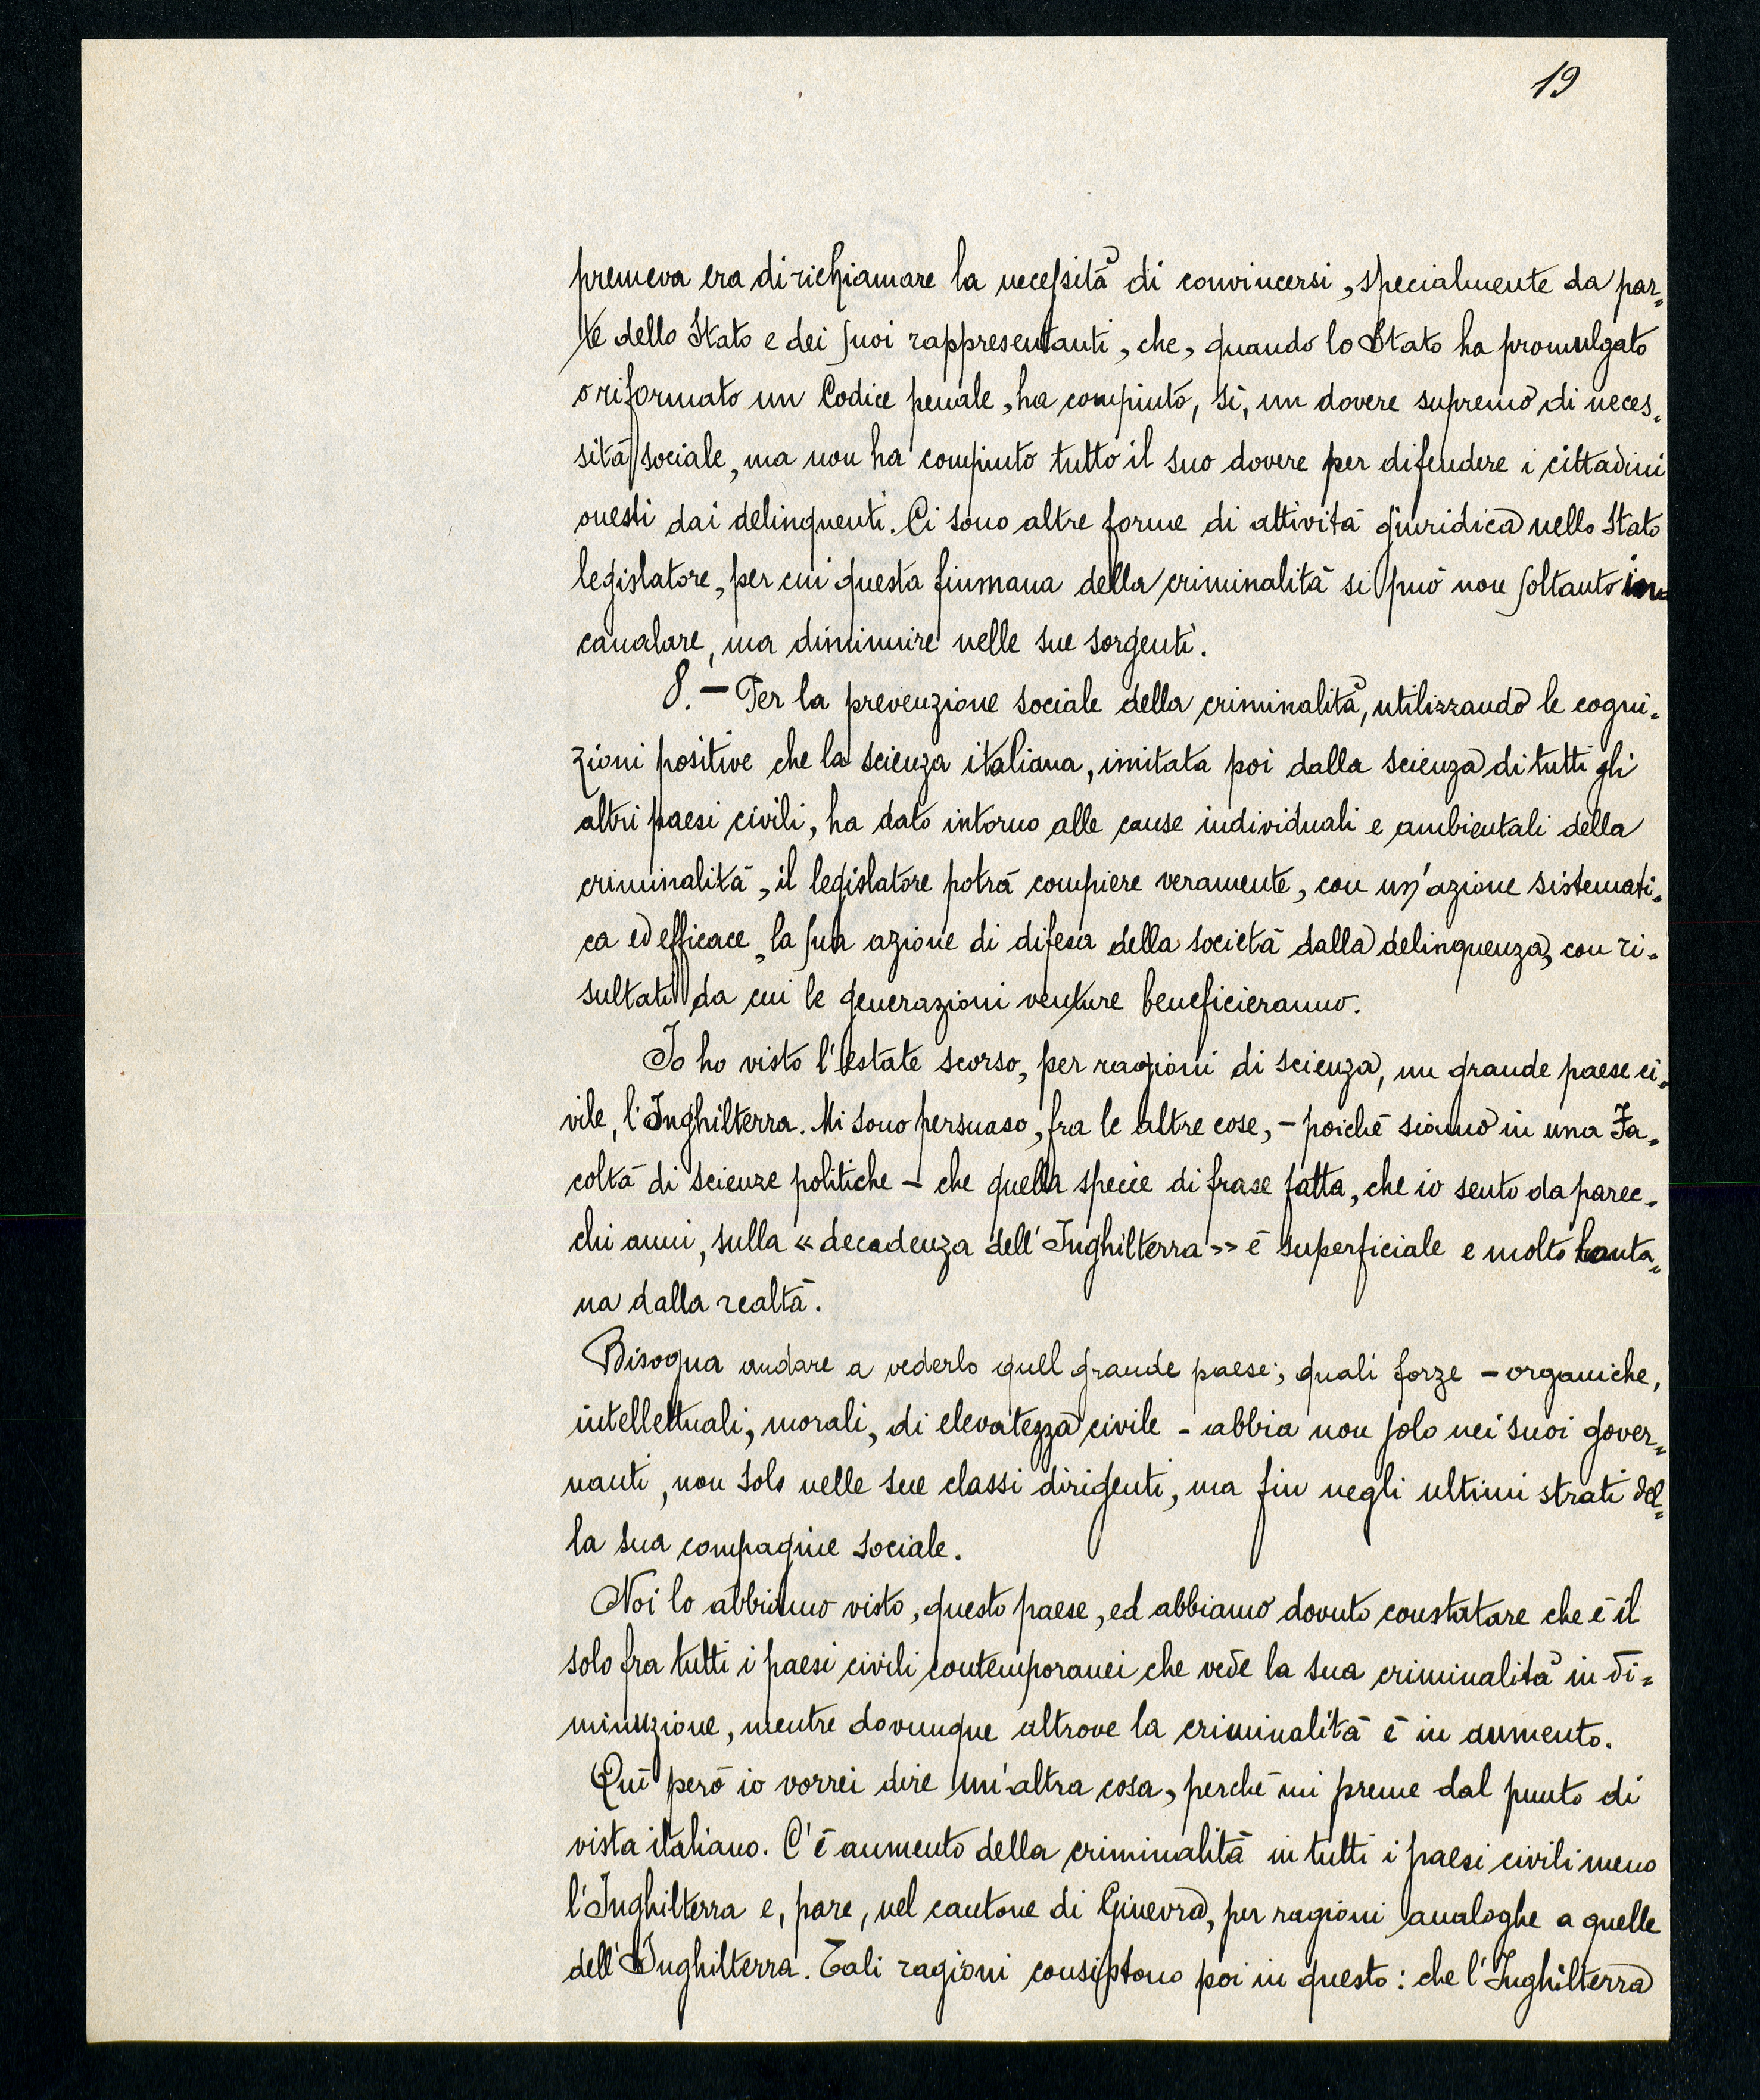 19
premeva era di richiamare la necessità di convincersi, specialmente da par=
te dello Stato e dei suoi rappresentanti, che, quando lo Stato ha promulgato
o riformato un Codice penale, ha compiuto, sì, un dovere supremo di neces=
sità sociale, ma non ha compiuto tutto il suo dovere per difendere i cittadini
onesti dai delinquenti. Ci sono altre forme di attività giuridica nello Stato
legislatore, per cui questa fiumana della criminalità si può non soltanto in
canalare, ma diminuire nelle sue sorgenti.
8. — Per la prevenzione sociale della criminalità, utilizzando le cogni=
zioni positive che la scienza italiana, imitata poi dalla scienza di tutti gli
altri paesi civili, ha dato intorno alle cause individuali e ambientali della
criminalità, il legislatore potrà compiere veramente, con un'azione sistemati=
ca ed efficace, la sua azione di difesa della società dalla delinquenza, con ri=
sultati da cui le generazioni venture beneficieranno.
Io ho visto l'estate scorso, per ragioni di scienza, un grande paese ci=
vile, l'Inghilterra. Mi sono persuaso, fra le altre cose, - poichè siamo in una Fa=
coltà di scienze politiche - che quella specie di frase fatta, che io sento da parec=
chi anni, sulla «decadenza dell'Inghilterra» è superficiale e molto lonta=
na dalla realtà.
Bisogna andare a vederlo quel grande paese; quali forze - organiche,
intellettuali, morali, di elevatezza civile - abbia non solo nei suoi gover=
nanti, non solo nelle sue classi dirigenti, ma fin negli ultimi strati del=
la sua compagine sociale.
Noi lo abbiamo visto, questo paese, ed abbiamo dovuto constatare che è il
solo fra tutti i paesi civili contemporanei che vede la sua criminalità in di=
minuzione, mentre dovunque altrove la criminalità è in aumento.
Qui però io vorrei dire un'altra cosa, perchè mi preme dal punto di
vista italiano. C'è aumento della criminalità in tutti i paesi civili meno
l'Inghilterra e, pare, nel cantone di Ginevra, per ragioni analoghe a quelle
dell'Inghilterra. Tali ragioni consistono poi in questo: che l'Inghilterra